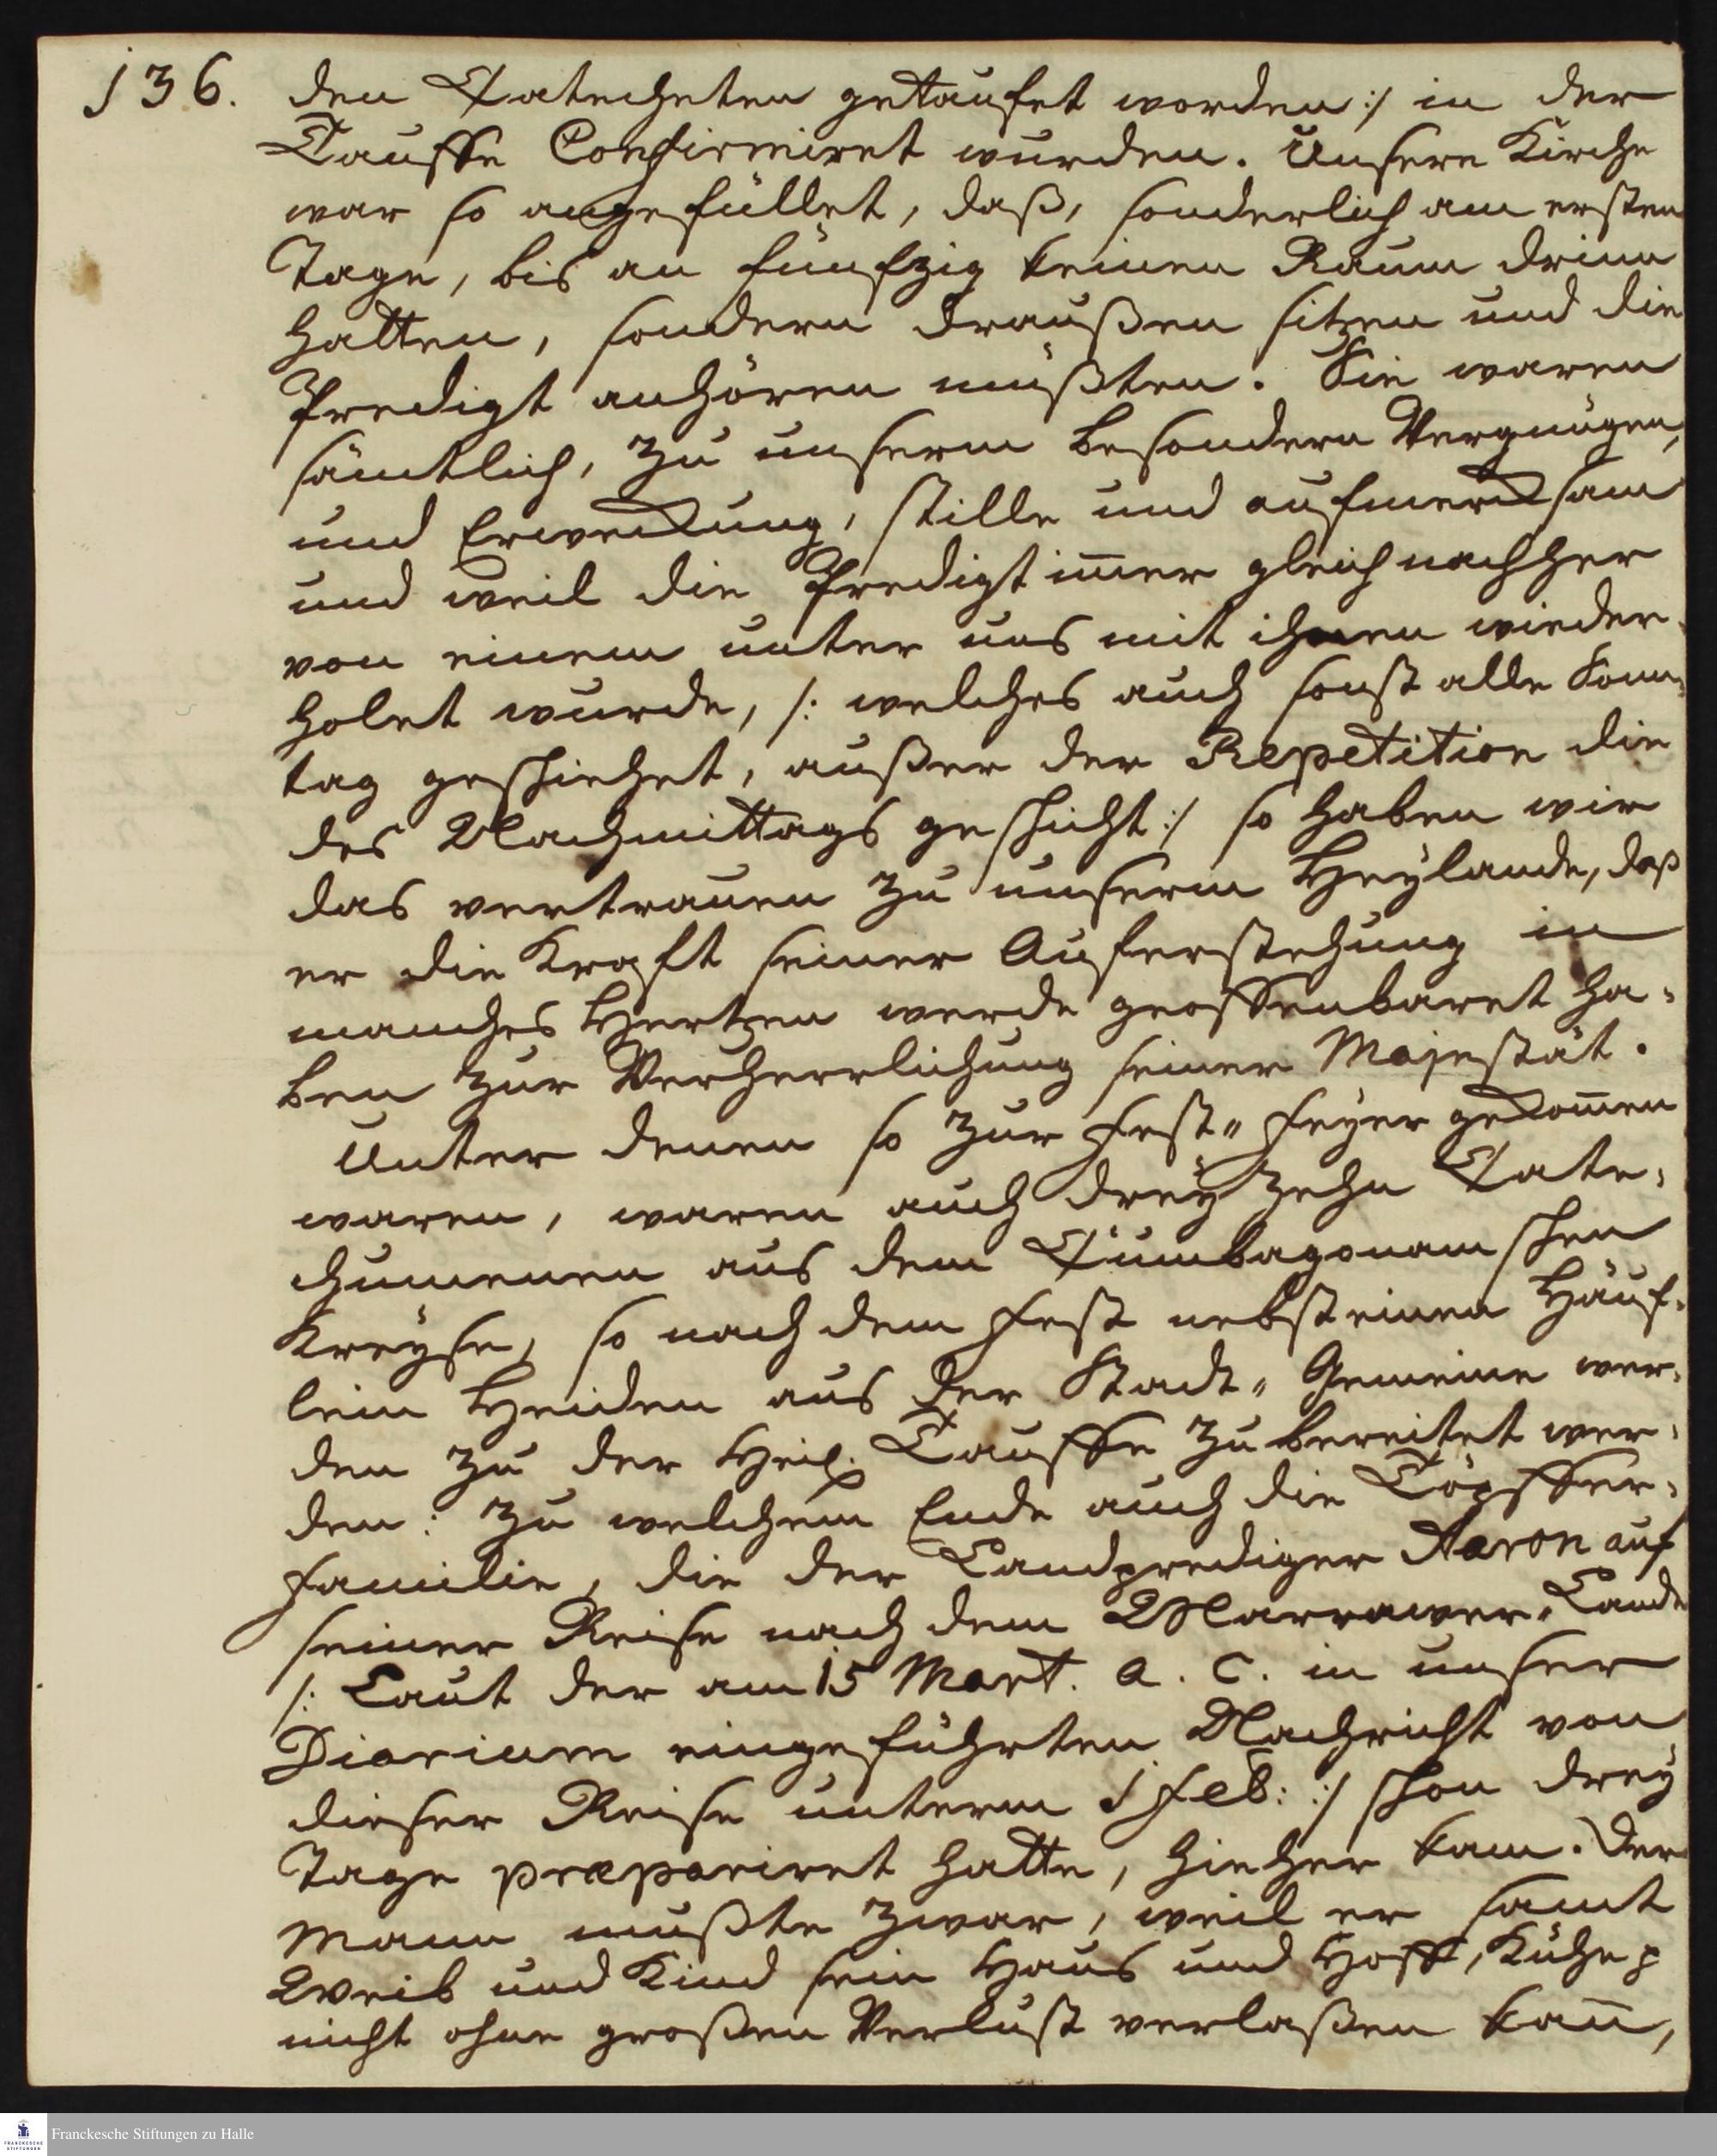 136.
den Catecheten getaufet worden :/ in der
Tauffe Confirmiret wurden. Unsere Kirche
war so angefüllet, daß, sonderlich am ersten
Tage, bis an funfzig keinen Raum drinn
hatten, sondern draußen sitzen und die
Predigt anhören müßten. Sie waren
sämtlich, zu unserm besondern Vergnügen,
und Erweckung, stille und aufmercksam
und weil die Predigt im̄er gleich nachher
von einem unter uns mit ihnen wieder-
holet wurde, /: welches auch sonst alle Sonn-
tag geschiehet, außer der Repetition die
des Nachmittags geschicht :/ so haben wir
das vertrauen zu unserm Heylande, daß
er die Kraft seiner Auferstehung in
manches Hertzen werde geoffenbaret ha-
ben zur Verherrlichung seiner Majestät.
Unter denen so zur Fest-Feyer gekom̄en
waren, waren auch dreyzehn Cate-
chumenen aus dem Cumbagonamschen
Kreyse, so nach dem Fest nebst einen Häuf-
lein Heiden aus der Stadt-Gemeine wer-
den zu der Heil. Tauffe zubereitet wer-
den: zu welchem Ende auch die Töpffer-
Familie, die der Landprediger Aaron auf
seiner Reise nach dem Marrawer-Lande
/: Laut der am 15 Mart. a. c. in unser
Diarium eingeführten Nachricht von
dieser Reise unterm 1 Feb: :/ schon drey
Tage præpariret hatte, hieher kam. Der
Mann mußte zwar, weil er samt
Weib und Kind sein Haus und Hoff, Kühe p
nicht ohne großen Verlust verlaßen kan̄,
Franckesche Stiftungen zu Halle